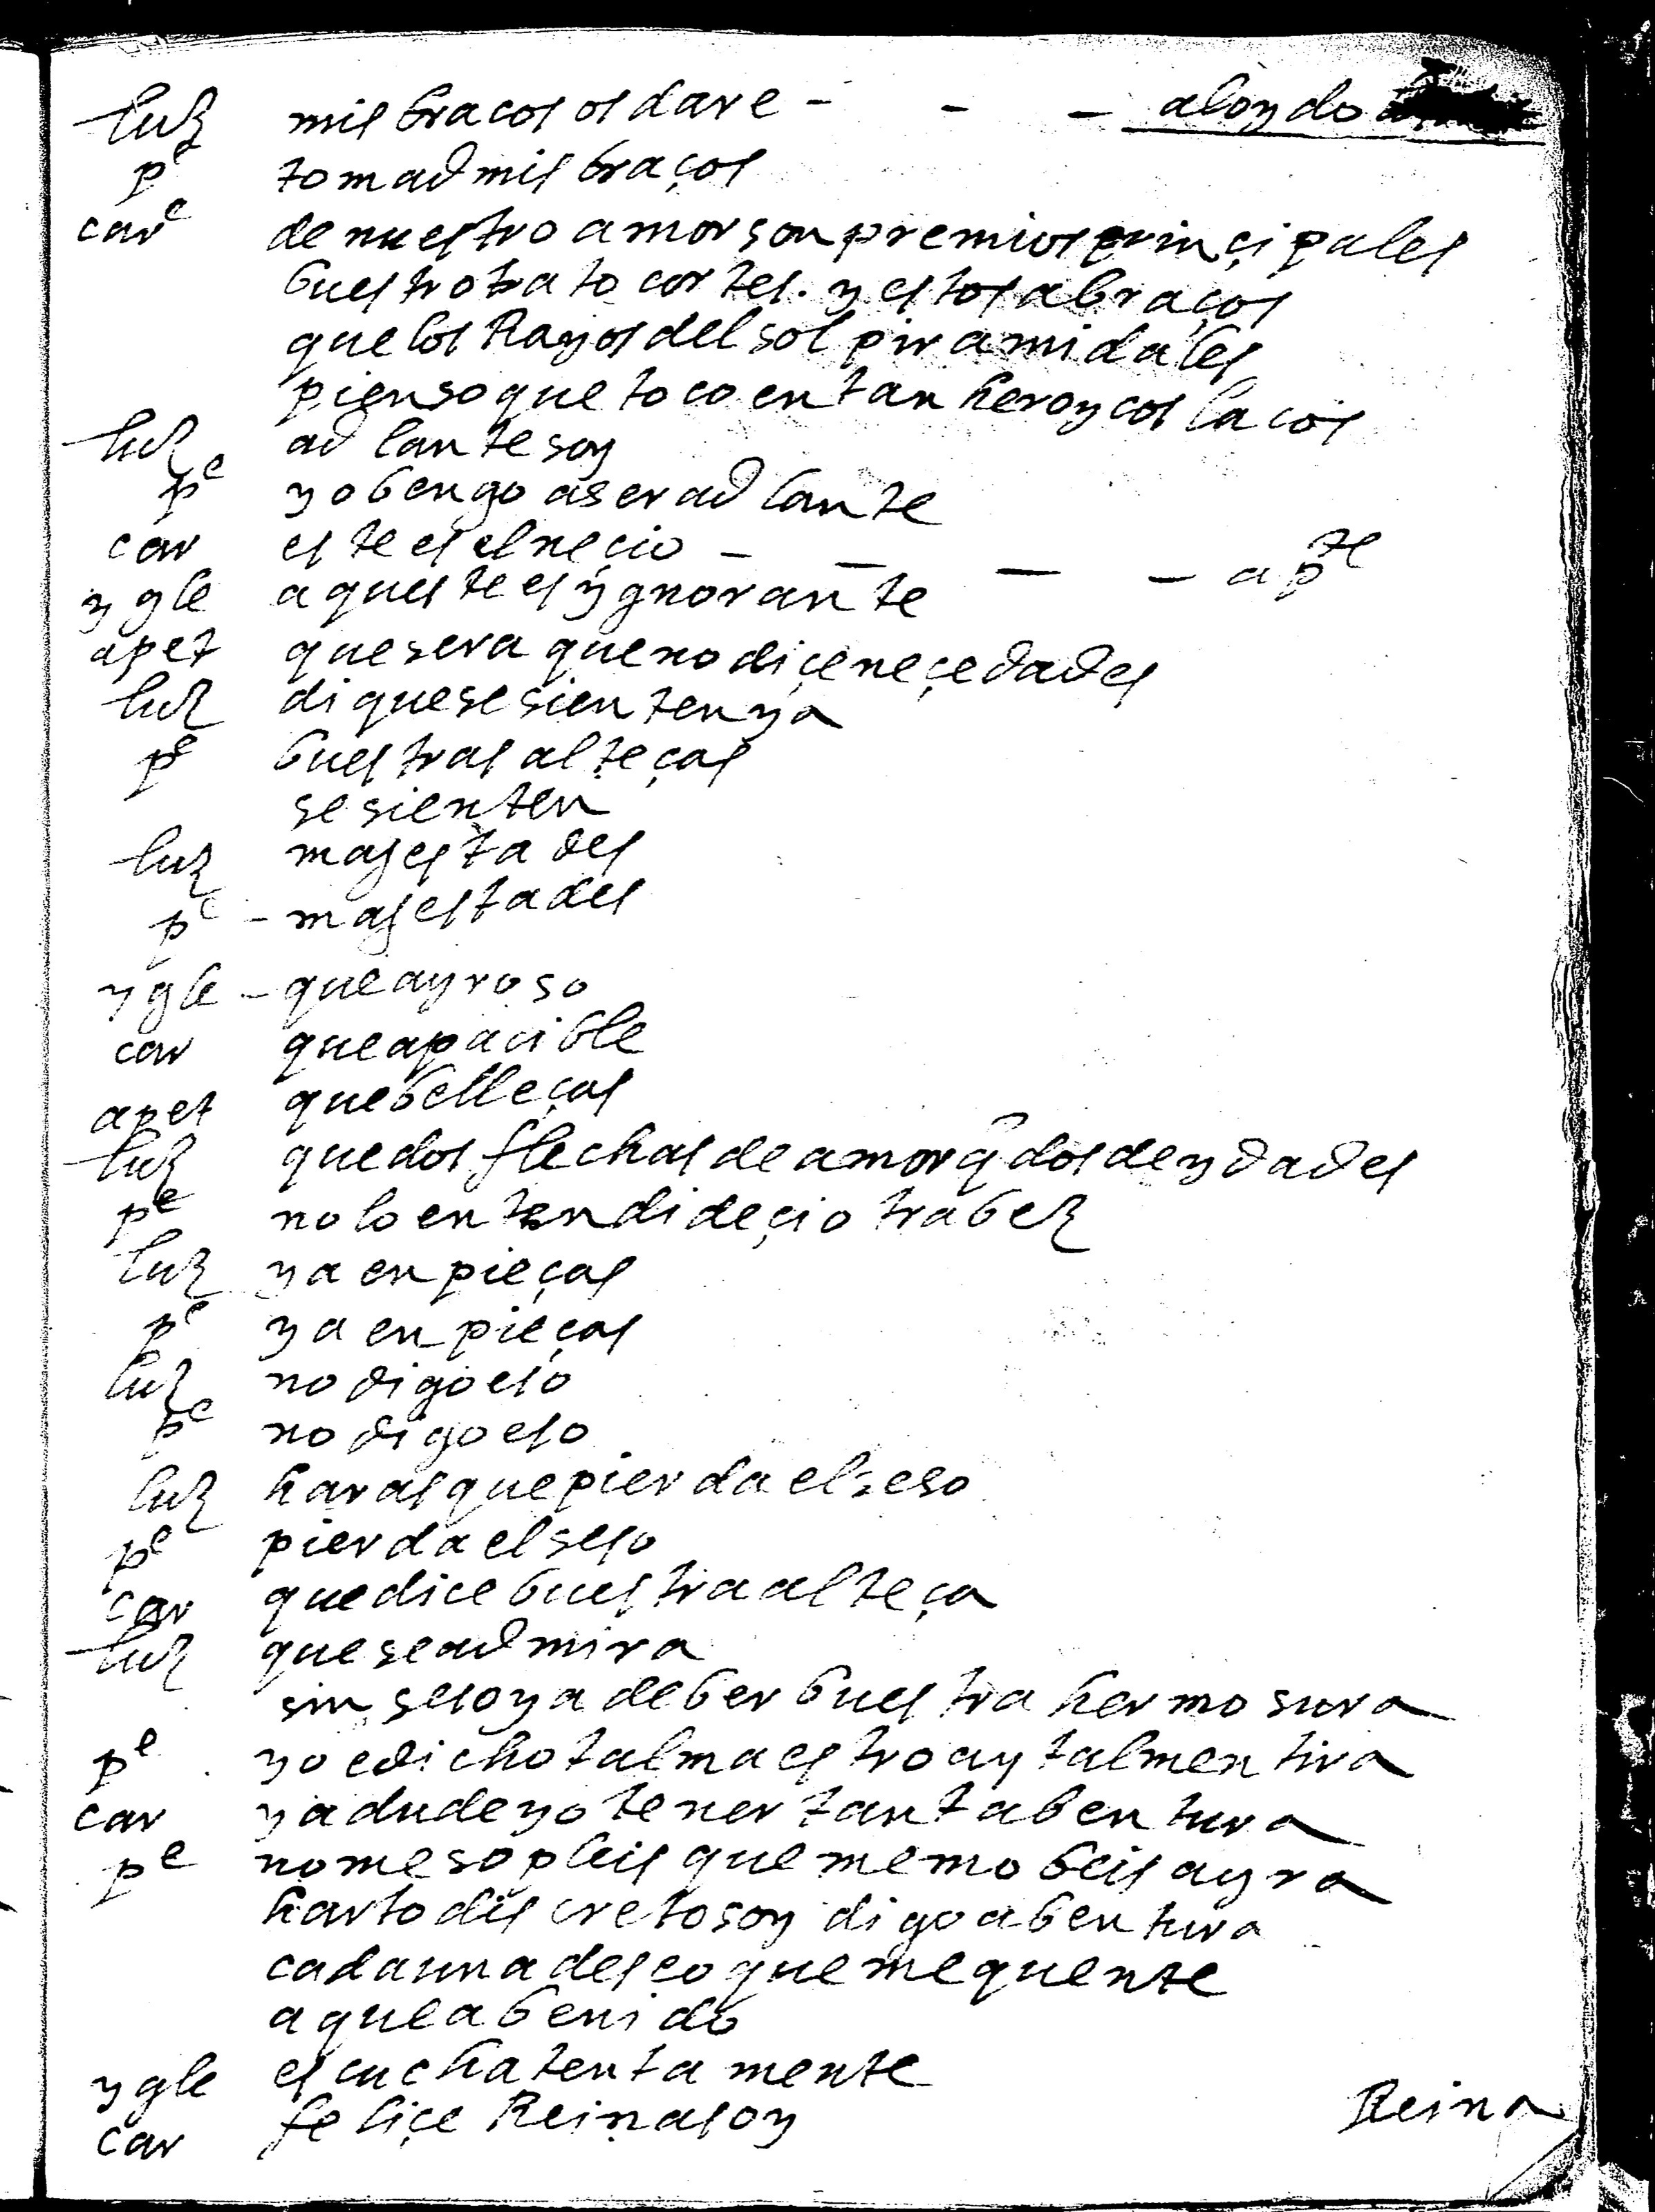 luz mis bracos os dare - - - al oydo
pe tomad mis braços
care de nuestro amor son premios prinçipales
buestro trato cortes. y estos abraços
que los Rayos del sol piramidales
pienso que toco en tan heroycos lacos
luz adlante soy
pe yo bengo a ser adlante
car este es el neçio - - - - apte
ygle aqueste es ygnorante
apet que sera que no diçe neçedades
luz di que se sienten ya
pe buestras alteças
se sienten
luz majestades
pe - majestades
ygle - que ayroso
car que apacible
apet que belleças
luz que dos flechas de amor q dos deydades
pe no lo entendi deçi otra bez
luz ya en pieças
pe ya en pieças
luz no digo eso
pe no digo eso
luz haras que pierda el seso
pe pierda el seso
car que dice buestra alteça
luz que se admira
sin seso ya de ber buestra hermosura
pe yo e dicho tal maestro ay tal mentira
car ya dude yo tener tanta bentura
pe no me sopleis que me mobeis a yra
harto discreto soy digo a bentura
cada una deseo que me quente
a que a benido
ygle escucha tentamente
car feliçe Reina soy
Reina